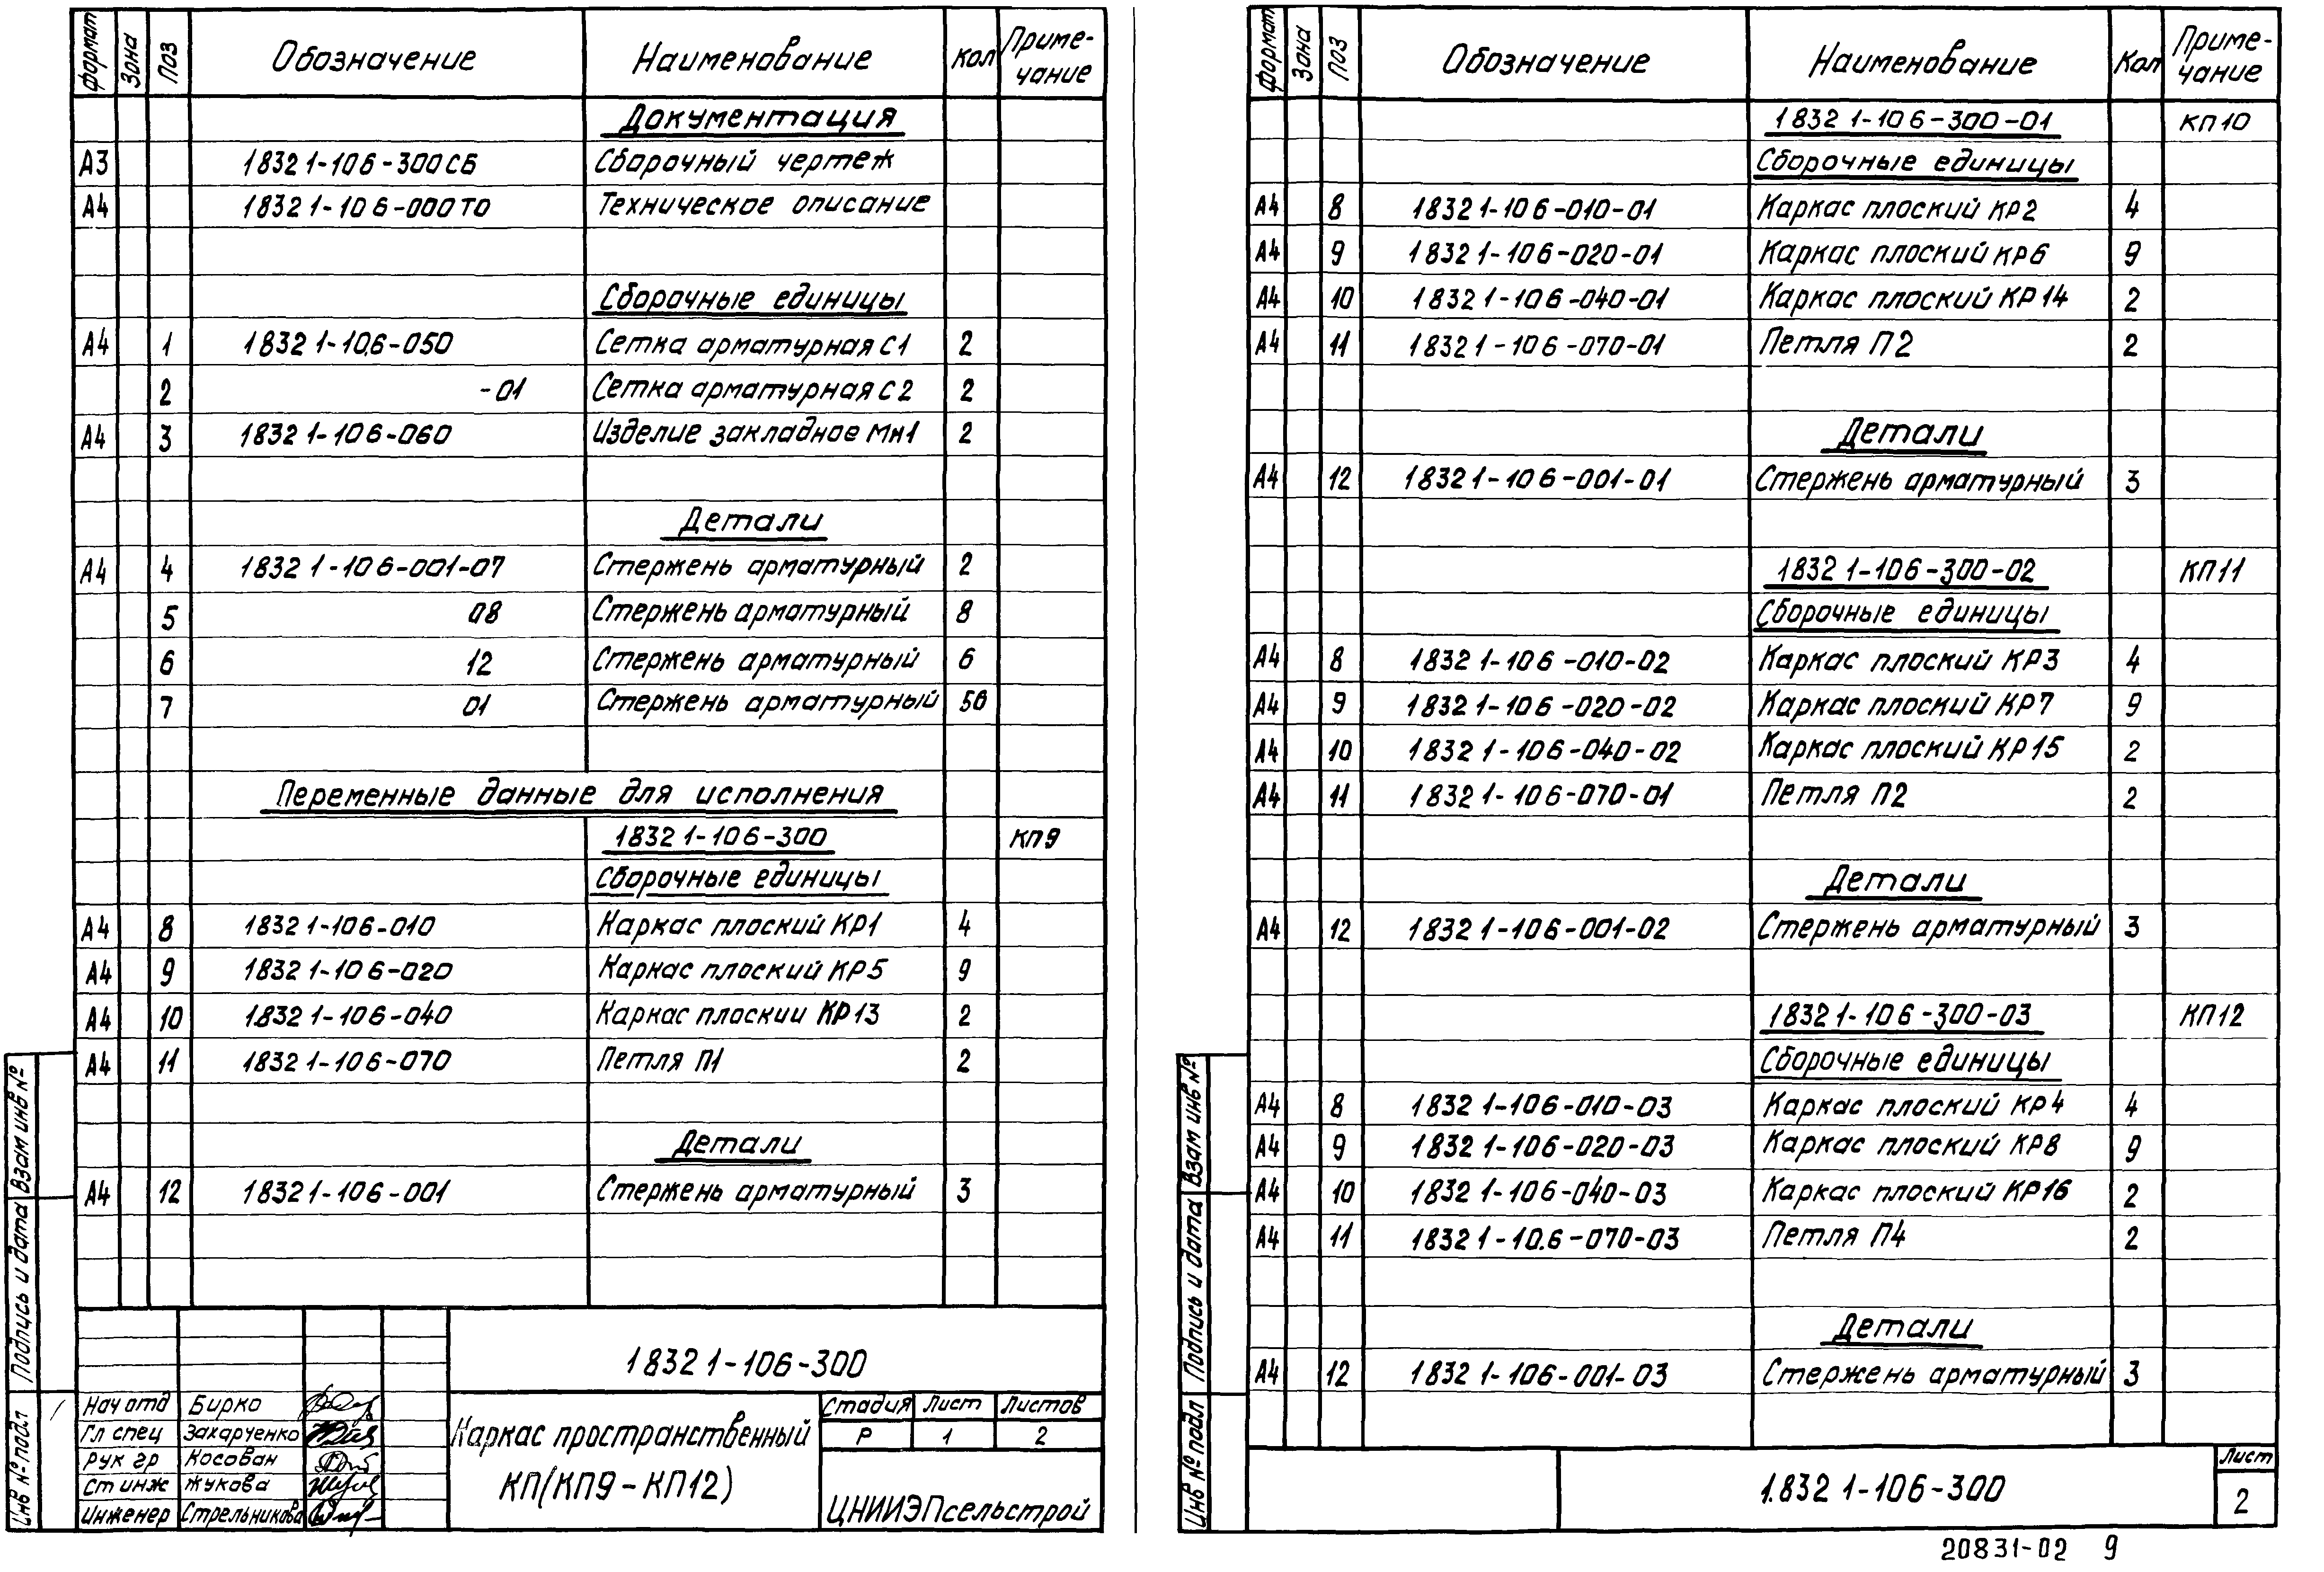 Формат Зона Поз Обозначение Наименование Кол Приме-
чание
Документация
А3 1832 1-106-300СБ Сборочный чертеж
А4 1832 1-106-000ТО Техническое описание
Сборочные единицы
А4 1 1832 1-10.6-050 Сетка арматурная С1 2
2 -01 Сетка арматурная С2 2
А4 3 1832 1-106-060 Изделие закладное МН1 2
Детали
А4 4 1832 1-106-001-07 Стержень арматурный 2
5 08 Стержень арматурный 8
6 12 Стержень арматурный 6
7 01 Стержень арматурный 56
Переменные данные для исполнения
1832 1-106-300 КП9
Сборочные единицы
А4 8 1832 1-106-010 Каркас плоский КР1 4
А4 9 1832 1-106-020 Каркас плоский КР5 9
А4 10 1.832 1-106-040 Каркас плоскии КР13 2
А4 11 1832 1-106-070 Петля П1 2
Детали
А4 12 1832 1-106-001 Стержень арматурный 3
Взам инв №
Подпись и дата
Инв № подл
1832 1-106-300
Нач отд Бирко
Гл спец Захарченко
Рук гр Косован
Ст инж Жукова
Инженер Стрельникова
Каркас пространственный
КП(КП9-КП12)
Стадия Лист Листов
Р 1 2
ЦНИИЭПсельстрой
Формат Зона Поз Обозначение Наименование Кол Приме-
чание
1832 1-106-300-01 КП10
Сборочные единицы
А4 8 1832 1-106-010-01 Каркас плоский КР2 4
А4 9 1832 1-106-020-01 Каркас плоский КР6 9
А4 10 1832 1-106-040-01 Каркас плоский КР14 2
А4 11 1832 1-106-070-01 Петля П2 2
Детали
А4 12 1832 1-106-001-01 Стержень арматурный 3
1832 1-106-300-02 КП11
Сборочные единицы
А4 8 1832 1-106-010-02 Каркас плоский КР3 4
А4 9 1832 1-106-020-02 Каркас плоский КР7 9
А4 10 1832 1-106-040-02 Каркас плоский КР15 2
А4 11 1832 1-106-070-01 Петля П2 2
Детали
А4 12 1832 1-106-001-02 Стержень арматурный 3
1832 1-106-300-03 КП12
Сборочные единицы
А4 8 1832 1-106-010-03 Каркас плоский КР4 4
А4 9 1832 1-106-020-03 Каркас плоский КР8 9
А4 10 1832 1-106-040-03 Каркас плоский КР16 2
А4 11 1832 1-10.6-070-03 Петля П4 2
Детали
А4 12 1832 1-106-001-03 Стержень арматурный 3
Взам инв №
Подпись и дата
Инв № подл
1.832 1-106-300
Лист
2
20831-02 9